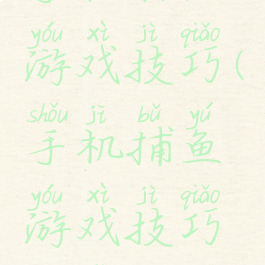 yóu xì jì qiǎo
游戏技巧(
shǒu jī bǔ yú
手机捕鱼
yóu xì jì qiǎo
游戏技巧